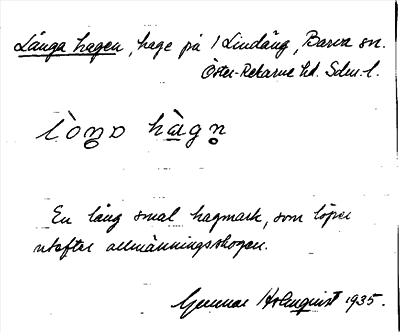 Långa hagen, hage på 1 Lindäng, Barva sn.
Öster-Rekarne hd. Sdm. l.
lòŋo hàgn̥
En lång smal hagmark, som löper
utefter allmänningsskogen.
Gunnar Holmquist 1935.